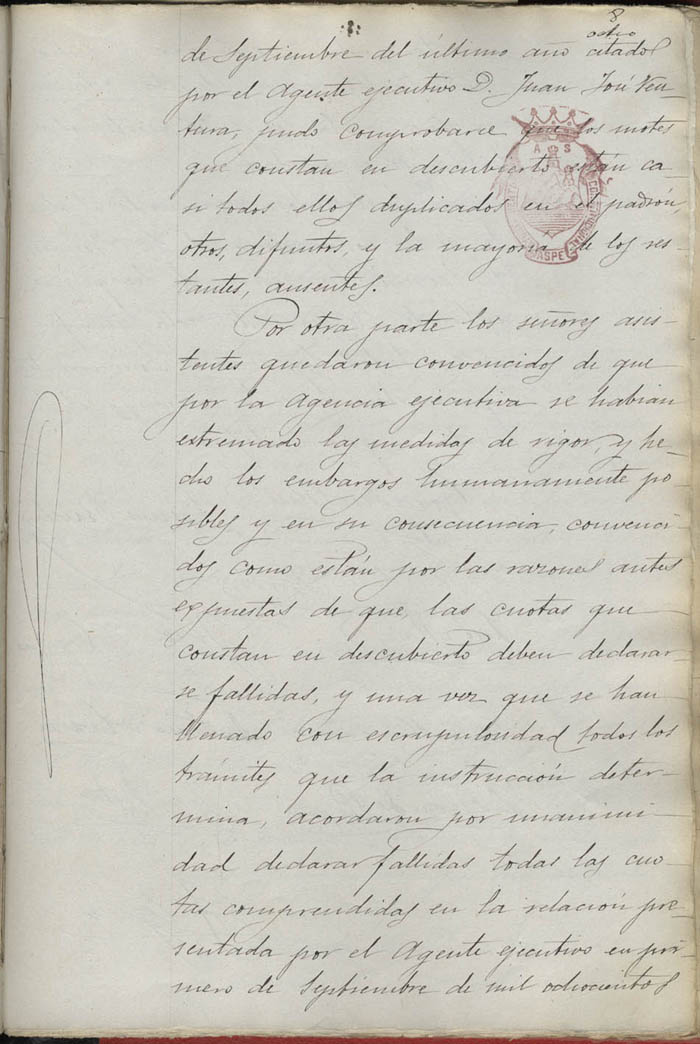 8
ocho
de Septiembre del último año citado
por el Agente ejecutivo D. Juan José Ven-
tura, pudo comprobarse que los motes
que constan en descubierto están ca-
si todos ellos duplicados en el padrón,
otros, difuntos, y la mayoria de los res-
tantes, ausentes.
Por otra parte los señores asis-
tentes quedaron convencidos de que
por la Agencia ejecutiva se habian
extremado las medidas de rigor, y he-
cho los embargos humanamente po-
sibles y en su consecuencia, convenci-
dos como están por las razones antes
expuestas de que, las cuotas que
constan en descubierto deben declarar-
se fallidas, y una vez que se han
llenado con escrupulosidad todos los
trámites que la instrucción deter-
mina, acordaron por unanimi-
dad declarar fallidas todas las cuo-
tas comprendidas en la relación pre-
sentada por el Agente ejecutivo en pri-
mero de Septiembre de mil ochocientos
A S
CASPE